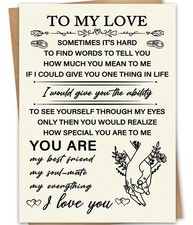 TO MY LOVE
SOMETIMES IT'S HARD
TO FIND WORDS TO TELL YOU
HOW MUCH YOU MEAN TO ME
IF I COULD GIVE YOU ONE THING IN LIFE
I would give you the ability
TO SEE YOURSELF THROUGH MY EYES
ONLY THEN YOU WOULD REALIZE
HOW SPECIAL YOU ARE TO ME
YOU ARE
my best friend
my soul-mate
my everything
I love you